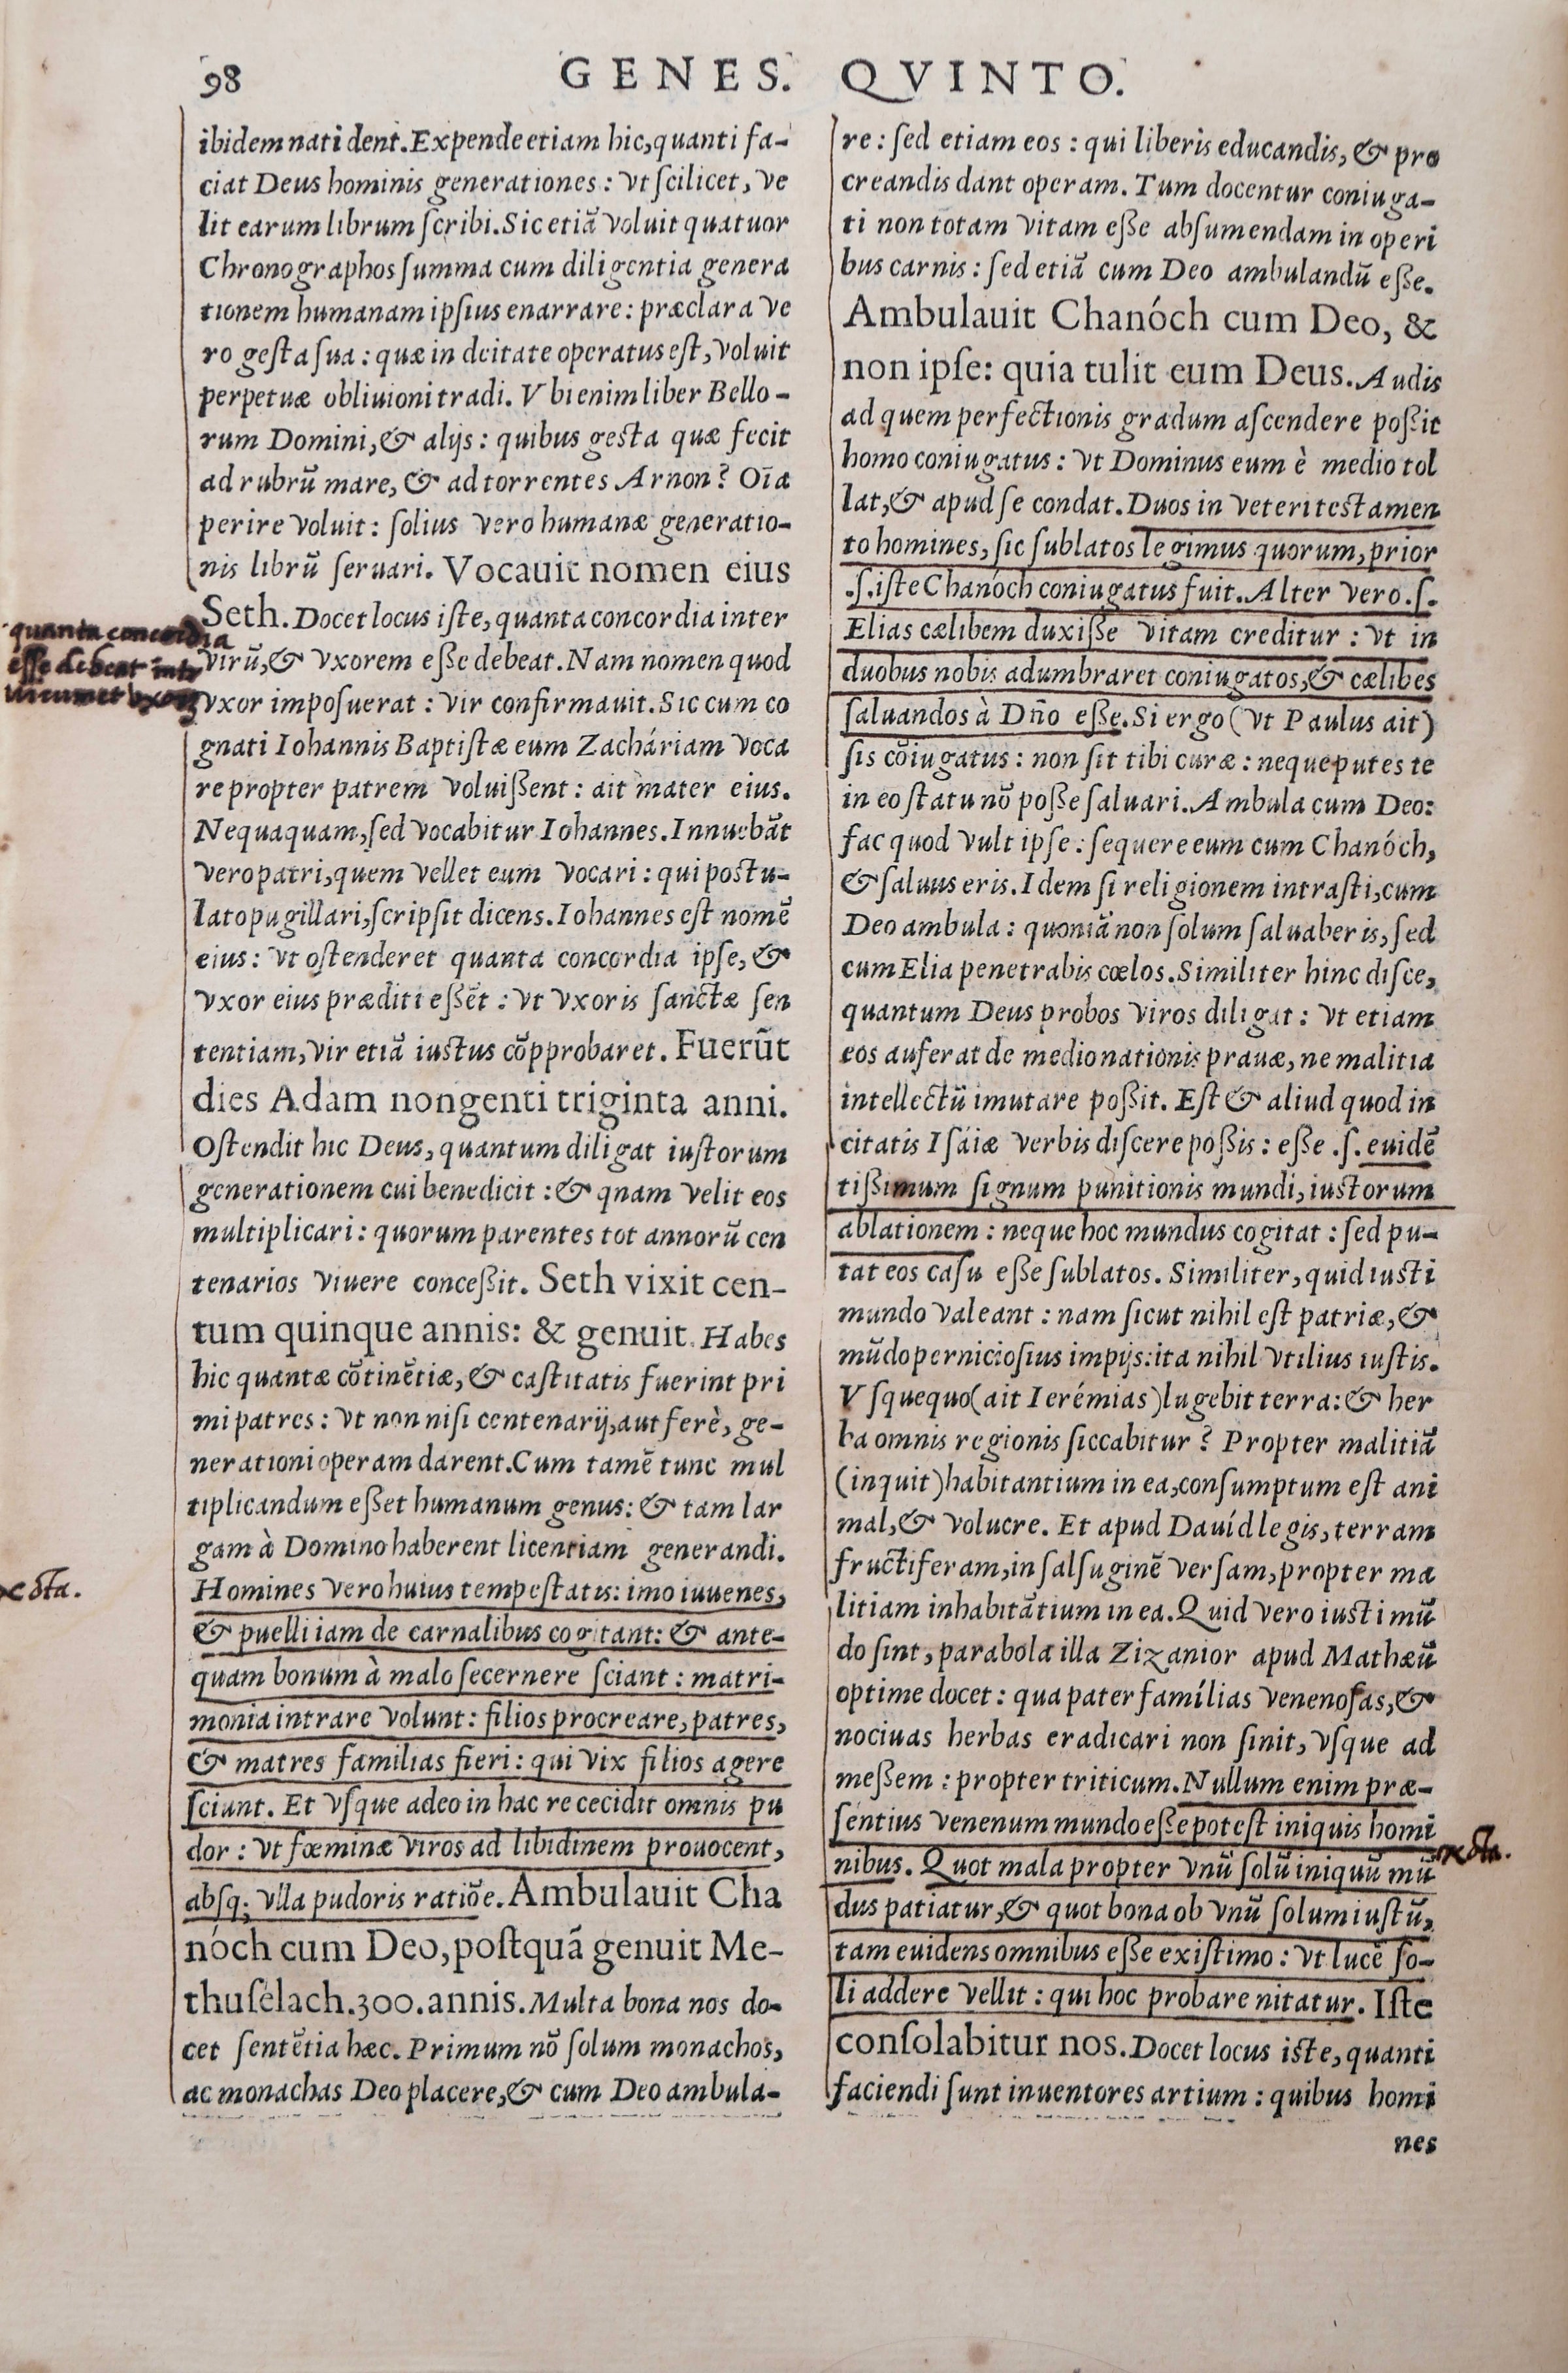 98
GENES. QVINTO.
ibidem nati dent. Expende etiam hic, quanti fa-
ciat Deus hominis generationes: vt scilicet, ve
lit earum librum scribi. Sic etiã voluit quatuor
Chronographos summa cum diligentia genera
tionem humanam ipsius enarrare: præclara ve
ro gesta sua: quæ in deitate operatus est, voluit
perpetuæ obliuioni tradi. Vbi enim liber Bello-
rum Domini, & alijs: quibus gesta quæ fecit
ad rubrũ mare, & ad torrentes Arnon? Oĩa
perire voluit: solius vero humanæ generatio-
nis librũ seruari. Vocauit nomen eius
Seth. Docet locus iste, quanta concordia inter
virũ, & vxorem esse debeat. Nam nomen quod
vxor imposuerat: vir confirmauit. Sic cum co
gnati Iohannis Baptistæ eum Zacháriam voca
re propter patrem voluissent: ait mater eius.
Nequaquam, sed vocabitur Iohannes. Innuebãt
vero patri, quem vellet eum vocari: qui postu-
lato pugillari, scripsit dicens. Iohannes est nomẽ
eius: vt ostenderet quanta concordia ipse, &
vxor eius præditi essẽt: vt vxoris sanctæ sen
tentiam, vir etiã iustus cõpprobaret. Fuerũt
dies Adam nongenti triginta anni.
Ostendit hic Deus, quantum diligat iustorum
generationem cui benedicit: & qnam velit eos
multiplicari: quorum parentes tot annorũ cen
tenarios viuere concessit. Seth vixit cen-
tum quinque annis: & genuit. Habes
hic quantæ cõtinẽtiæ, & castitatis fuerint pri
mi patres: vt non nisi centenarij, aut ferè, ge-
nerationi operam darent. Cum tamẽ tunc mul
tiplicandum esset humanum genus: & tam lar
gam à Domino haberent licentiam generandi.
Homines vero huius tempestatis: imo iuuenes,
& puelli iam de carnalibus cogitant: & ante-
quam bonum à malo secernere sciant: matri-
monia intrare volunt: filios procreare, patres,
& matres familias fieri: qui vix filios agere
sciunt. Et vsque adeo in hac re cecidit omnis pu
dor: vt fœminæ viros ad libidinem prouocent,
absq; vlla pudoris ratiõe. Ambulauit Cha
nóch cum Deo, postquã genuit Me-
thusélach. 300. annis. Multa bona nos do-
cet sentẽtia hæc. Primum nõ solum monachos,
ac monachas Deo placere, & cum Deo ambula-
quanta concordia
esse debeat inter
uirum et uxorem
nõta.
re: sed etiam eos: qui liberis educandis, & pro
creandis dant operam. Tum docentur coniuga-
ti non totam vitam esse absumendam in operi
bus carnis: sed etiã cum Deo ambulandũ esse.
Ambulauit Chanóch cum Deo, &
non ipse: quia tulit eum Deus. Audis
ad quem perfectionis gradum ascendere possit
homo coniugatus: vt Dominus eum è medio tol
lat, & apud se condat. Duos in veteri testamen
to homines, sic sublatos legimus quorum, prior
.s. iste Chanóch coniugatus fuit. Alter vero .s.
Elias cælibem duxisse vitam creditur: vt in
duobus nobis adumbraret coniugatos, & cælibes
saluandos à Dño esse. Si ergo (vt Paulus ait)
sis cõiugatus: non sit tibi curæ: neque putes te
in eo statu nõ posse saluari. Ambula cum Deo:
fac quod vult ipse: sequere eum cum Chanóch,
& saluus eris. Idem si religionem intrasti, cum
Deo ambula: quoniã non solum saluaberis, sed
cum Elia penetrabis cœlos. Similiter hinc disce,
quantum Deus probos viros diligat: vt etiam
eos auferat de medio nationis prauæ, ne malitia
intellectũ imutare possit. Est & aliud quod in
citatis Isáiæ verbis discere possis: esse .s. euidẽ
tissimum signum punitionis mundi, iustorum
ablationem: neque hoc mundus cogitat: sed pu-
tat eos casu esse sublatos. Similiter, quid iusti
mundo valeant: nam sicut nihil est patriæ, &
mũdo perniciosius impijs: ita nihil vtilius iustis.
Vsquequo (ait Ierémias) lugebit terra: & her
ba omnis regionis siccabitur? Propter malitiã
(inquit) habitantium in ea, consumptum est ani
mal, & volucre. Et apud Dauíd legis, terram
fructiferam, in salsuginẽ versam, propter ma
litiam inhabitãtium in ea. Quid vero iusti mũ
do sint, parabola illa Zizanior apud Mathæũ
optime docet: qua pater famílias venenosas, &
nociuas herbas eradicari non sinit, vsque ad
messem: propter triticum. Nullum enim præ-
sentius venenum mundo esse potest iniquis homi
nibus. Quot mala propter vnũ solũ iniquũ mũ
dus patiatur, & quot bona ob vnũ solum iustũ,
tam euidens omnibus esse existimo: vt lucẽ so-
li addere vellit: qui hoc probare nitatur. Iste
consolabitur nos. Docet locus iste, quanti
faciendi sunt inuentores artium: quibus homi
nes
nõta.